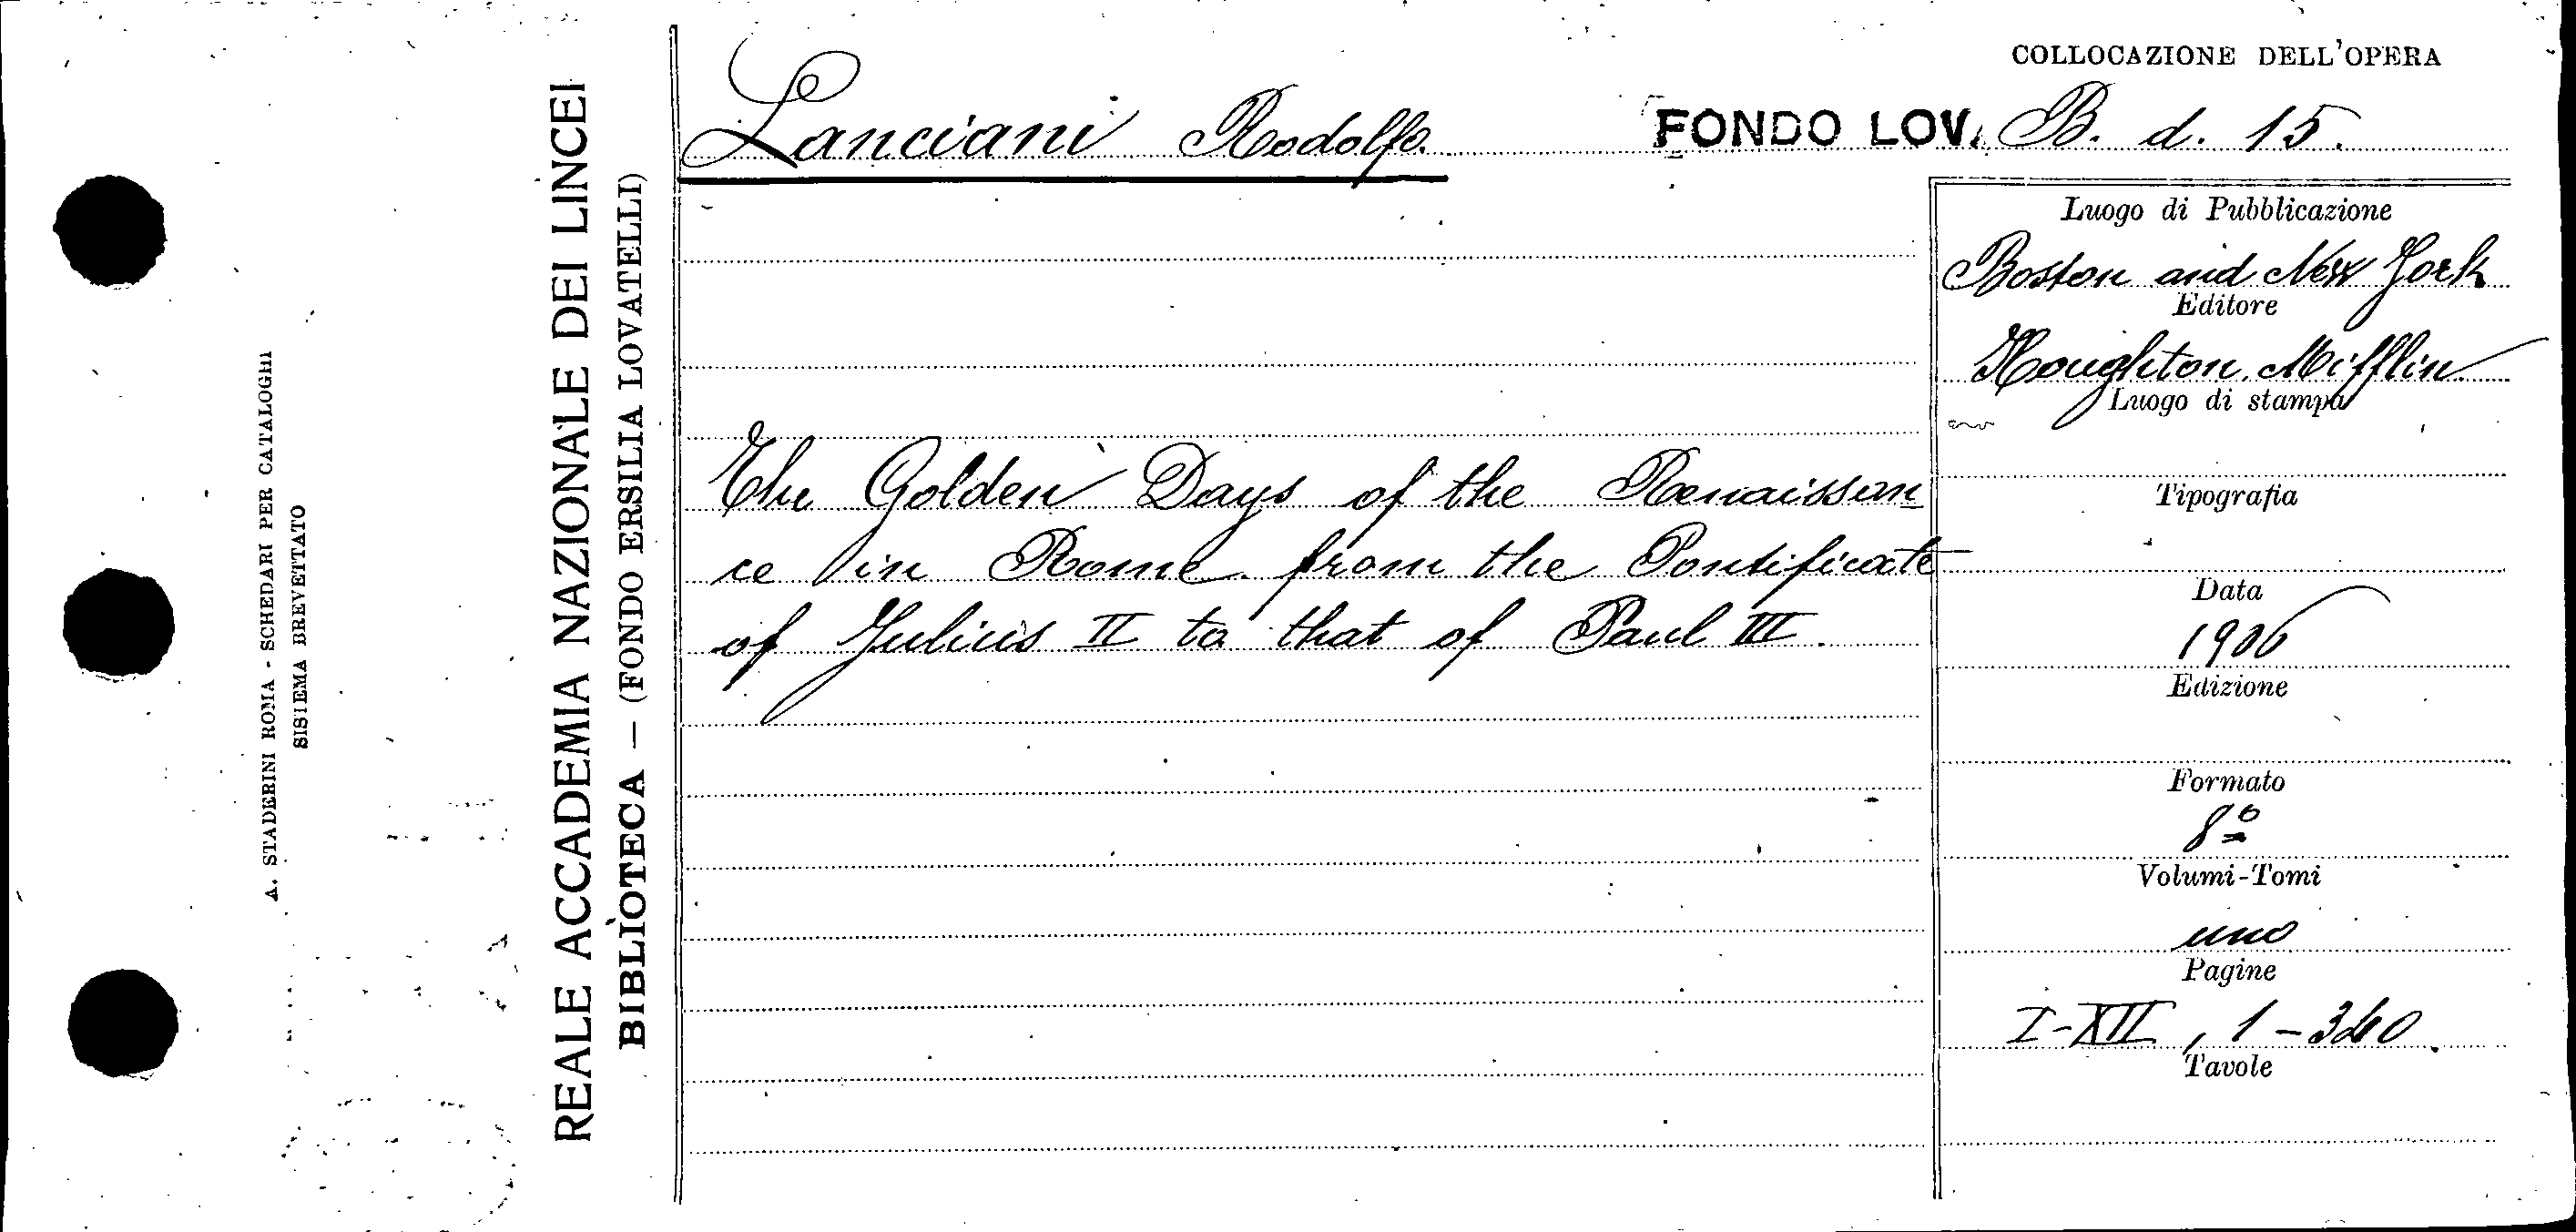 A. STADERINI ROMA - SCHEDARI PER CATALOGHI
SISTEMA BREVETTATO
REALE ACCADEMIA NAZIONALE DEI LINCEI
BIBLIOTECA — (FONDO ERSILIA LOVATELLI)
COLLOCAZIONE DELL'OPERA
Lanciani Rodolfo.
FONDO LOV. B. d. 15.
The Golden Days of the Renaissan
ce in Rome from the Pontificate
of Julius II to that of Paul III.
Luogo di Pubblicazione
Boston and New York
Editore
Houghton. Mifflin
Luogo di stampa
Tipografia
Data
1906
Edizione
Formato
8º
Volumi-Tomi
uno
Pagine
I-XII, 1-340.
Tavole